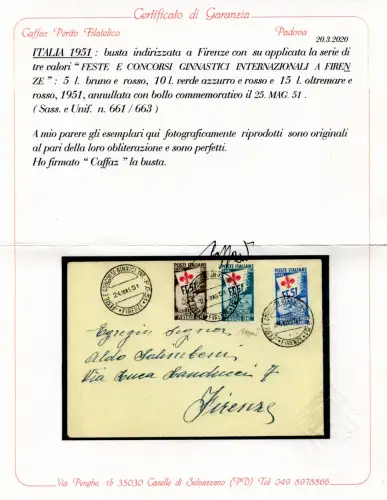 Certificato di Garanzia
Caffaz Perito Filatelico Padova
20.3.2020
ITALIA 1951 : busta indirizzata a Firenze con su applicata la serie di
tre valori “FESTE E CONCORSI GINNASTICI INTERNAZIONALI A FIREN
ZE” : 5 l. bruno e rosso, 10 l. verde azzurro e rosso e 15 l. oltremare e
rosso, 1951, annullata con bollo commemorativo il 25. MAG. 51 .
( Sass. e Unif. n. 661 / 663 )
A mio parere gli esemplari qui fotograficamente riprodotti sono originali
al pari della loro obliterazione e sono perfetti.
Ho firmato “ Caffaz ” la busta.
Caffaz
POSTE ITALIANE POSTE ITALIANE
24.MAG.51
FIRENZE
Egregio Signor
Aldo Salimbeni
Via Luca Landucci 7
Firenze
Via Penghe 16 35030 Caselle di Selvazzano (PD) Tel 049 8978866